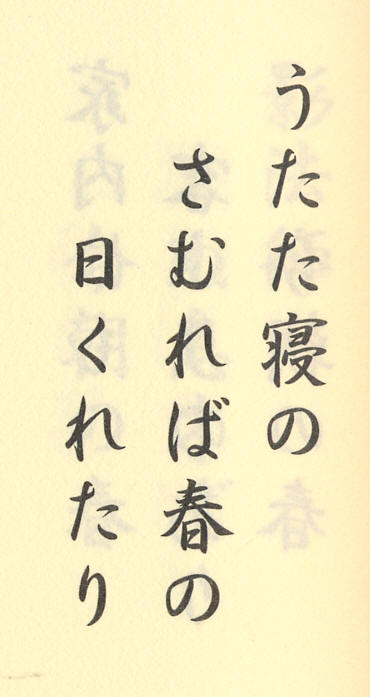 うたた寝の
さむれば春の
日くれたり